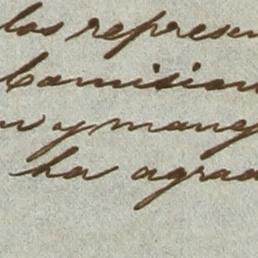 los represen
Comision
n y maneg
ha agrad